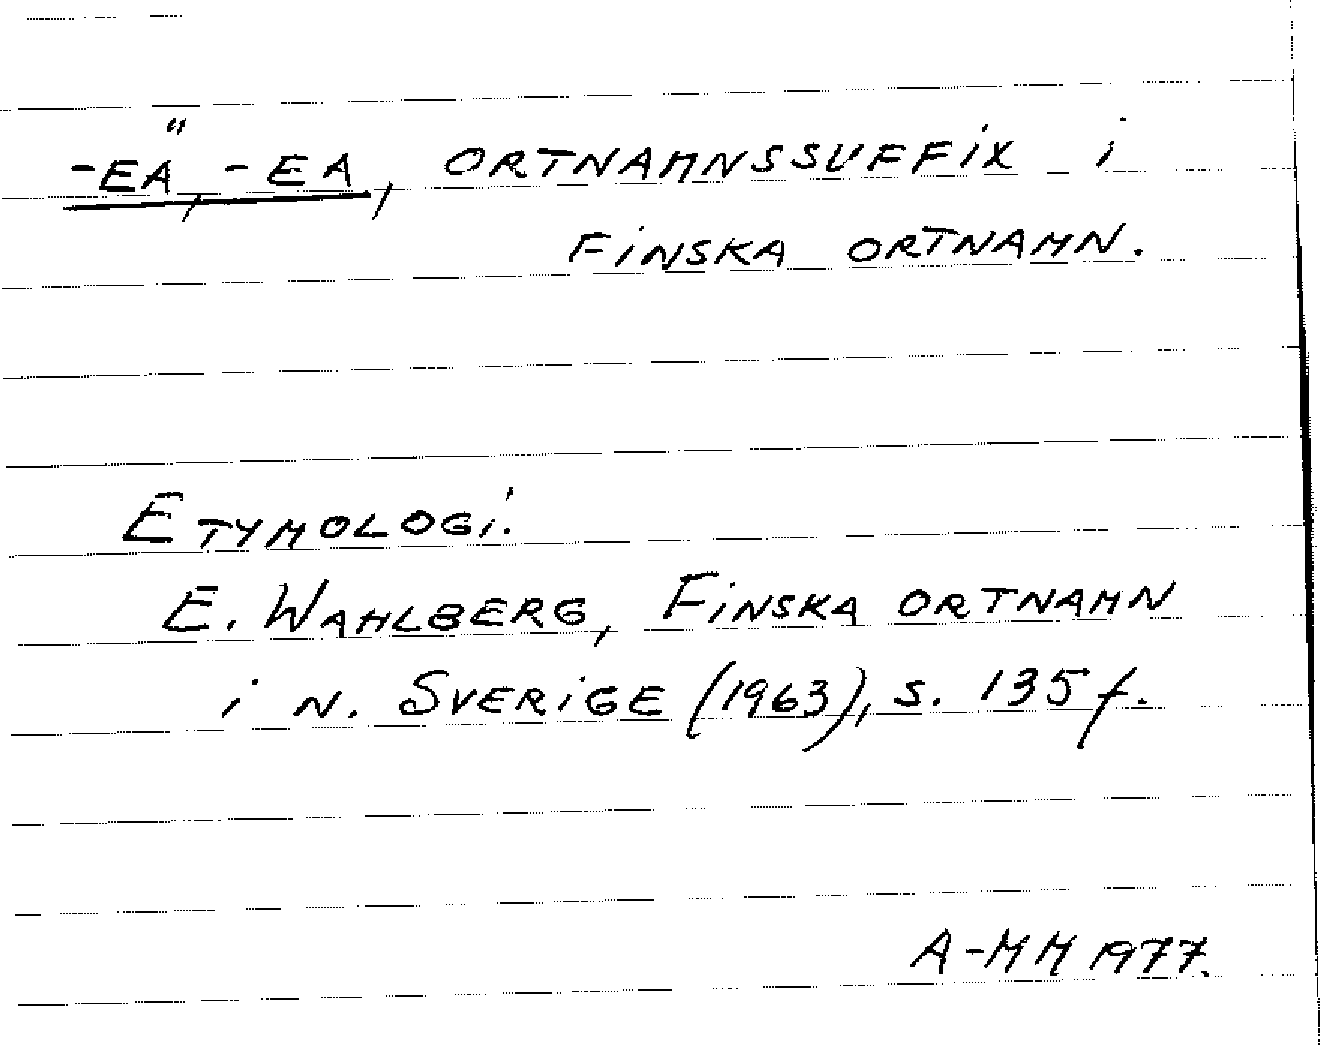 -EÄ, -EA, ORTNAMNSSUFFIX i
FINSKA ORTNAMN.
ETYMOLOGI:
E. WAHLBERG, FINSKA ORTNAMN
i N. SVERIGE (1963), S. 135 f.
A-MM 1977.